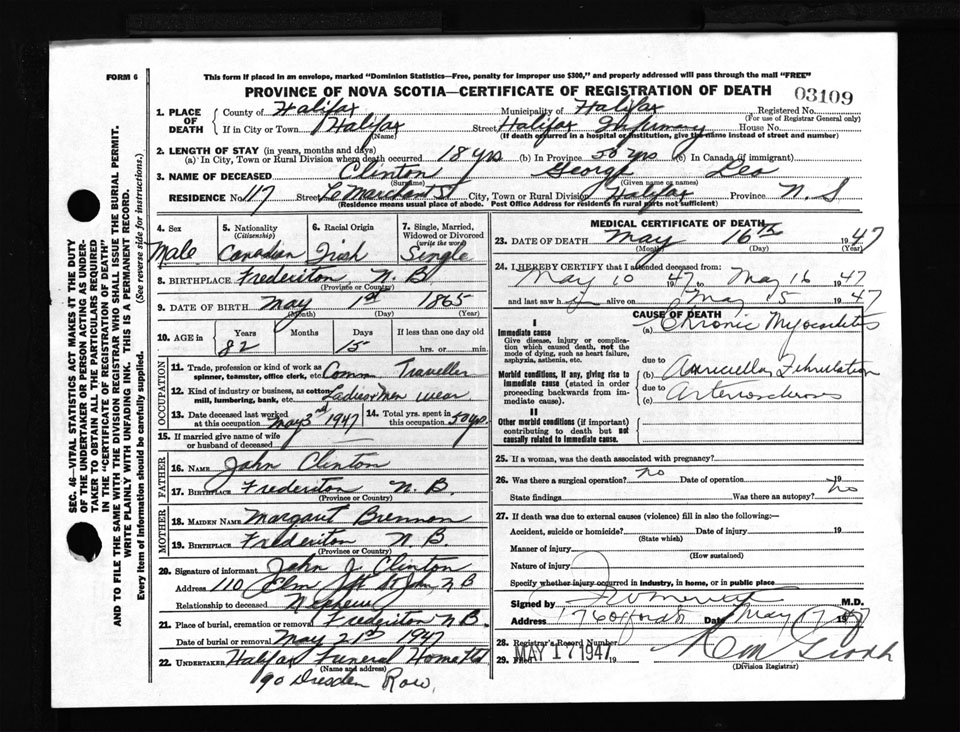 FORM 6
This form if placed in an envelope, marked "Dominion Statistics—Free, penalty for improper use $300," and properly addressed will pass through the mail "FREE"
PROVINCE OF NOVA SCOTIA—CERTIFICATE OF REGISTRATION OF DEATH
03109
1. PLACE OF DEATH County of Halifax Municipality of Halifax Registered No.
(For use of Registrar General only)
If in City or Town Halifax Street Halifax Infirmary House No.
(Name) (If death occurred in a hospital or institution, give the name instead of street and number)
2. LENGTH OF STAY (in years, months and days)
(a) In City, Town or Rural Division where death occurred 18 yrs (b) In Province 50 yrs (c) In Canada (if immigrant)
3. NAME OF DECEASED Clinton George Leo
(Surname) (Given name or names)
RESIDENCE No. 117 Street LeMarchant St City, Town or Rural Division Halifax Province N. S
(Residence means usual place of abode. Post Office Address for residents in rural parts not sufficient)
4. Sex 5. Nationality (Citizenship) 6. Racial Origin 7. Single, Married, Widowed or Divorced (write the word)
Male Canadian Irish Single
8. BIRTHPLACE Frederiton N. B
(Province or Country)
9. DATE OF BIRTH May 1st 1865
(Month) (Day) (Year)
10. AGE in Years Months Days If less than one day old
82 15 hrs. or min.
OCCUPATION
11. Trade, profession or kind of work as spinner, teamster, office clerk, etc. Comm Traveller
12. Kind of industry or business, as cotton mill, lumbering, bank, etc. Ladies & Men wear
13. Date deceased last worked at this occupation May 3rd 1947 14. Total yrs. spent in this occupation 50 yrs.
15. If married give name of wife or husband of deceased
FATHER
16. NAME John Clinton
17. BIRTHPLACE Frederiton N. B.
(Province or Country)
MOTHER
18. MAIDEN NAME Margaut Brennon
19. BIRTHPLACE Frederiton N. B
(Province or Country)
20. Signature of informant John J. Clinton
Address 110 Elm St St John, N B
Relationship to deceased Nephew
21. Place of burial, cremation or removal Frederiton N B.
Date of burial or removal May 21st 1947
22. UNDERTAKER Halifax Funeral Home Ltd
(Name and address)
90 Dresden Row,
MEDICAL CERTIFICATE OF DEATH
23. DATE OF DEATH May 16th 1947
(Month) (Day) (Year)
24. I HEREBY CERTIFY that I attended deceased from:
May 10 1947 to May 16 1947
and last saw h alive on May 15 1947
CAUSE OF DEATH
I
Immediate cause (a) Chronic Myocarditis
Give disease, injury or complication which caused death, not the mode of dying, such as heart failure, asphyxia, asthenia, etc.
due to
Morbid conditions, if any, giving rise to immediate cause (stated in order proceeding backwards from immediate cause). (b) Auricular Fibrillation
due to
(c) Arteriosclerosis
II
Other morbid conditions (if important) contributing to death but not causally related to immediate cause.
25. If a woman, was the death associated with pregnancy?
26. Was there a surgical operation? no Date of operation 19
State findings Was there an autopsy? no
27. If death was due to external causes (violence) fill in also the following:—
Accident, suicide or homicide? Date of injury 19
(State which)
Manner of injury
(How sustained)
Nature of injury
Specify whether injury occurred in industry, in home, or in public place
Signed by M.D.
Address 176 Date May 17 1947
28. Registrar's Record Number
29. Filed MAY 17 1947 19
(Division Registrar)
SEC. 46—VITAL STATISTICS ACT MAKES IT THE DUTY
OF THE UNDERTAKER OR PERSON ACTING AS UNDERTAKER
TO OBTAIN ALL THE PARTICULARS REQUIRED
IN THE "CERTIFICATE OF REGISTRATION OF DEATH"
AND TO FILE THE SAME WITH THE DIVISION REGISTRAR WHO SHALL ISSUE THE BURIAL PERMIT.
WRITE PLAINLY WITH UNFADING INK. THIS IS A PERMANENT RECORD.
Every item of information should be carefully supplied. (See reverse side for instructions.)